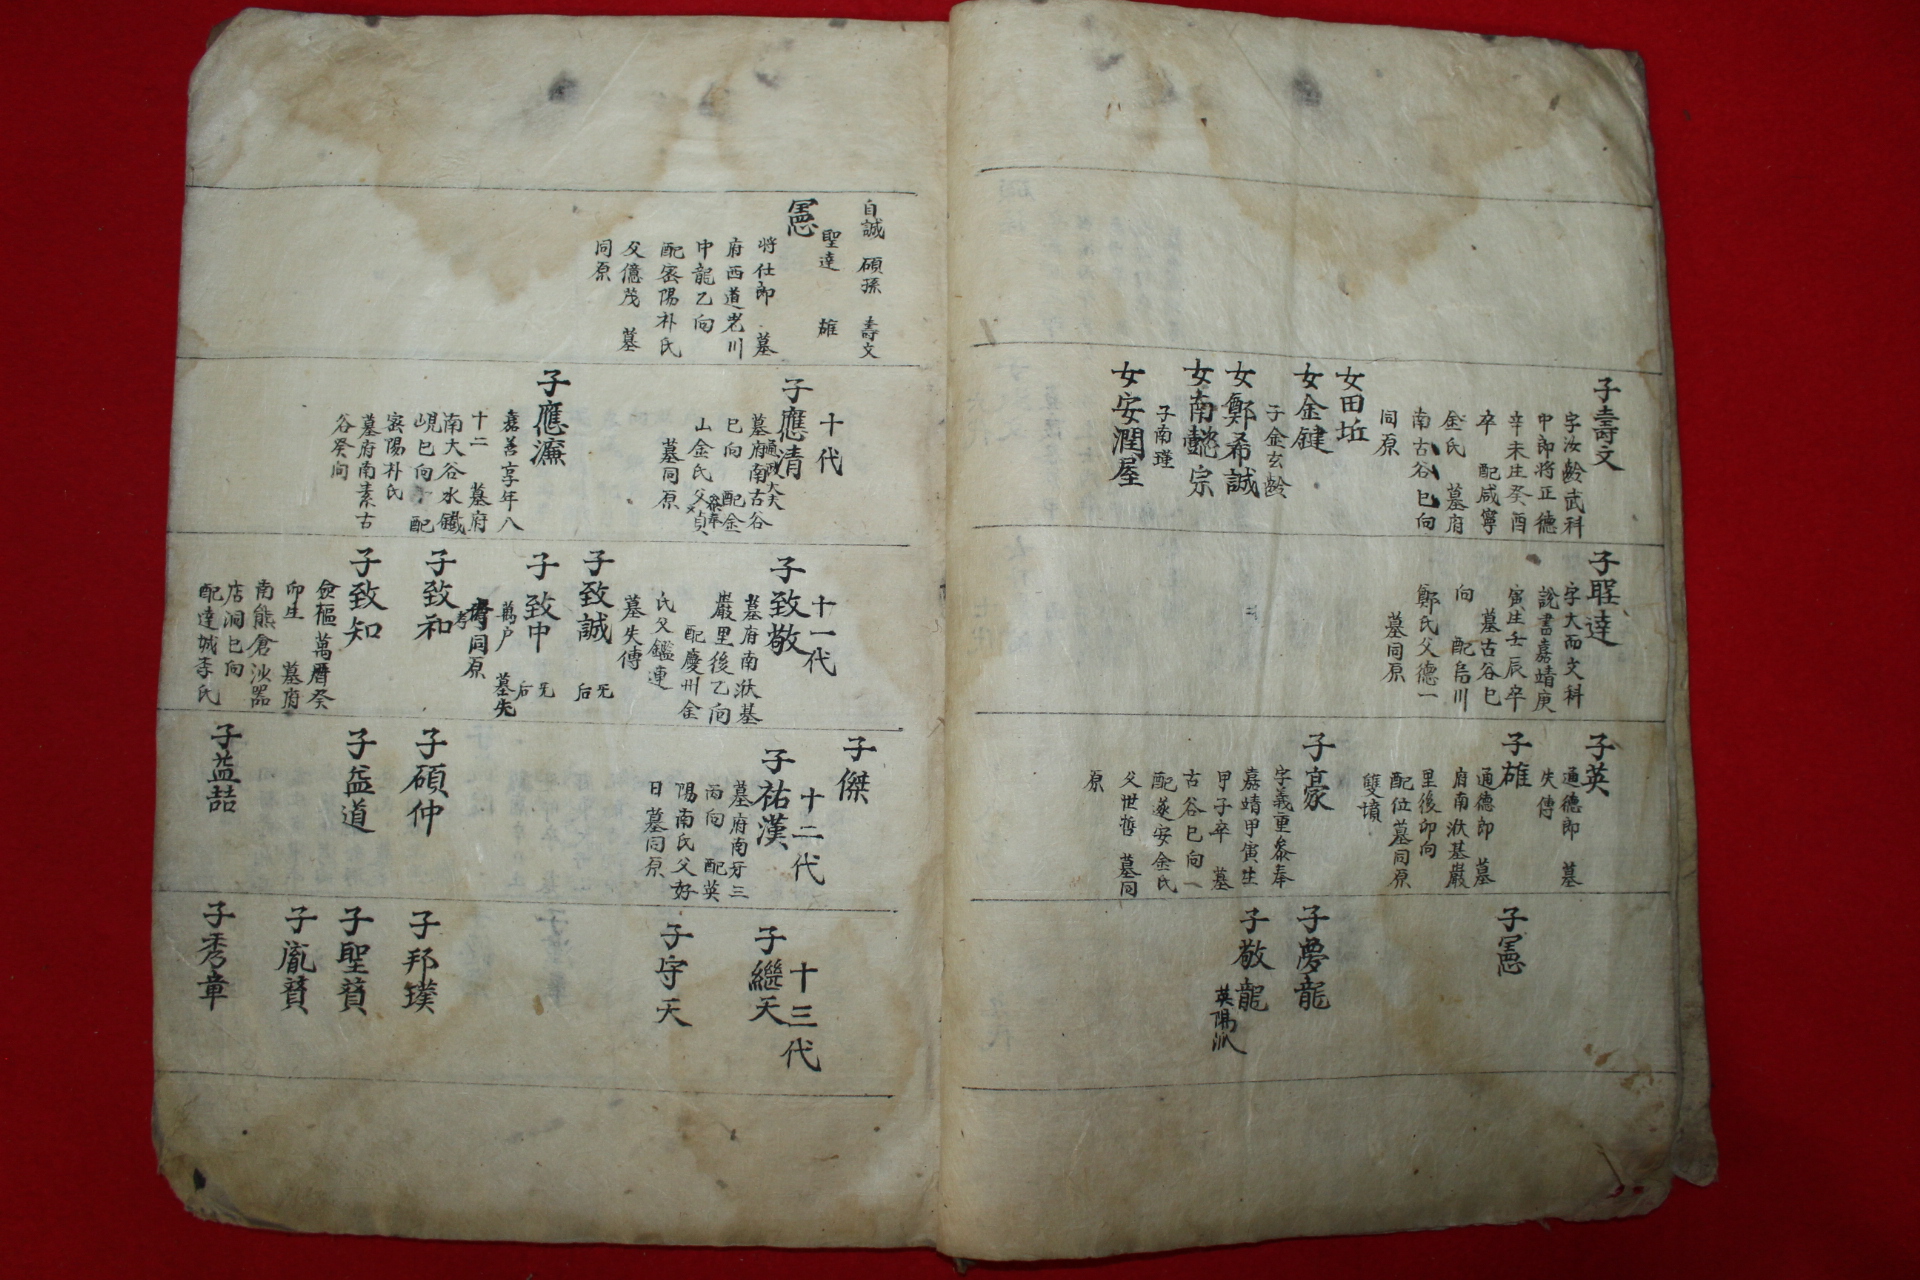 子壽文
字汝齡武科
中郎将正德
辛未生癸酉
卒　配咸寧
金氏　墓府
南古谷巳向
同原
女田垢
女金鍵
子金玄齡
女鄭希誠
女南懿宗
子南瑾
女安潤屋
字大而文科
說書嘉靖庚
寅生壬辰卒
墓古谷巳
向　配烏川
鄭氏父德一
墓同原
子英
通德郎　墓
失傳
子雄
通德郎　墓
府南洑基巖
里後卯向
配位墓同原
雙墳
子豪
字義重叅奉
嘉靖甲寅生
甲子卒　墓
古谷巳向一
配遂安金氏
父世哲　墓同
原
子憲
子夢龍
子敬龍
英陽派
自誠　碩孫　壽文
聖達　雄
憲
將仕郎　墓
府西道老川
申龍乙向
配密陽朴氏
父億茂　墓
同原
十代
子應清
通政大夫
墓府南古谷
巳向　配金
山金氏父貞
叅奉
墓同原
子應濂
嘉善享年八
十二　墓府
南大谷水鐵
峴巳向　配
密陽朴氏
墓府南素古
谷癸向
十一代
子致敬
墓府南洑基
巖里後乙向
配慶州金
氏父鑑連
墓失傳
子致誠
无后
子致中
萬户　墓失
无后
同原
子致和
子致知
僉樞萬曆癸
卯生　墓府
南熊倉沙器
店洞巳向
配達城李氏
子傑
十二代
子祐漢
墓府南牙三
丙向　配英
陽南氏父好
日墓同原
子碩仲
子益道
子益喆
十三代
子繼天
子守天
子邦璞
子聖賛
子胤賛
子秀章